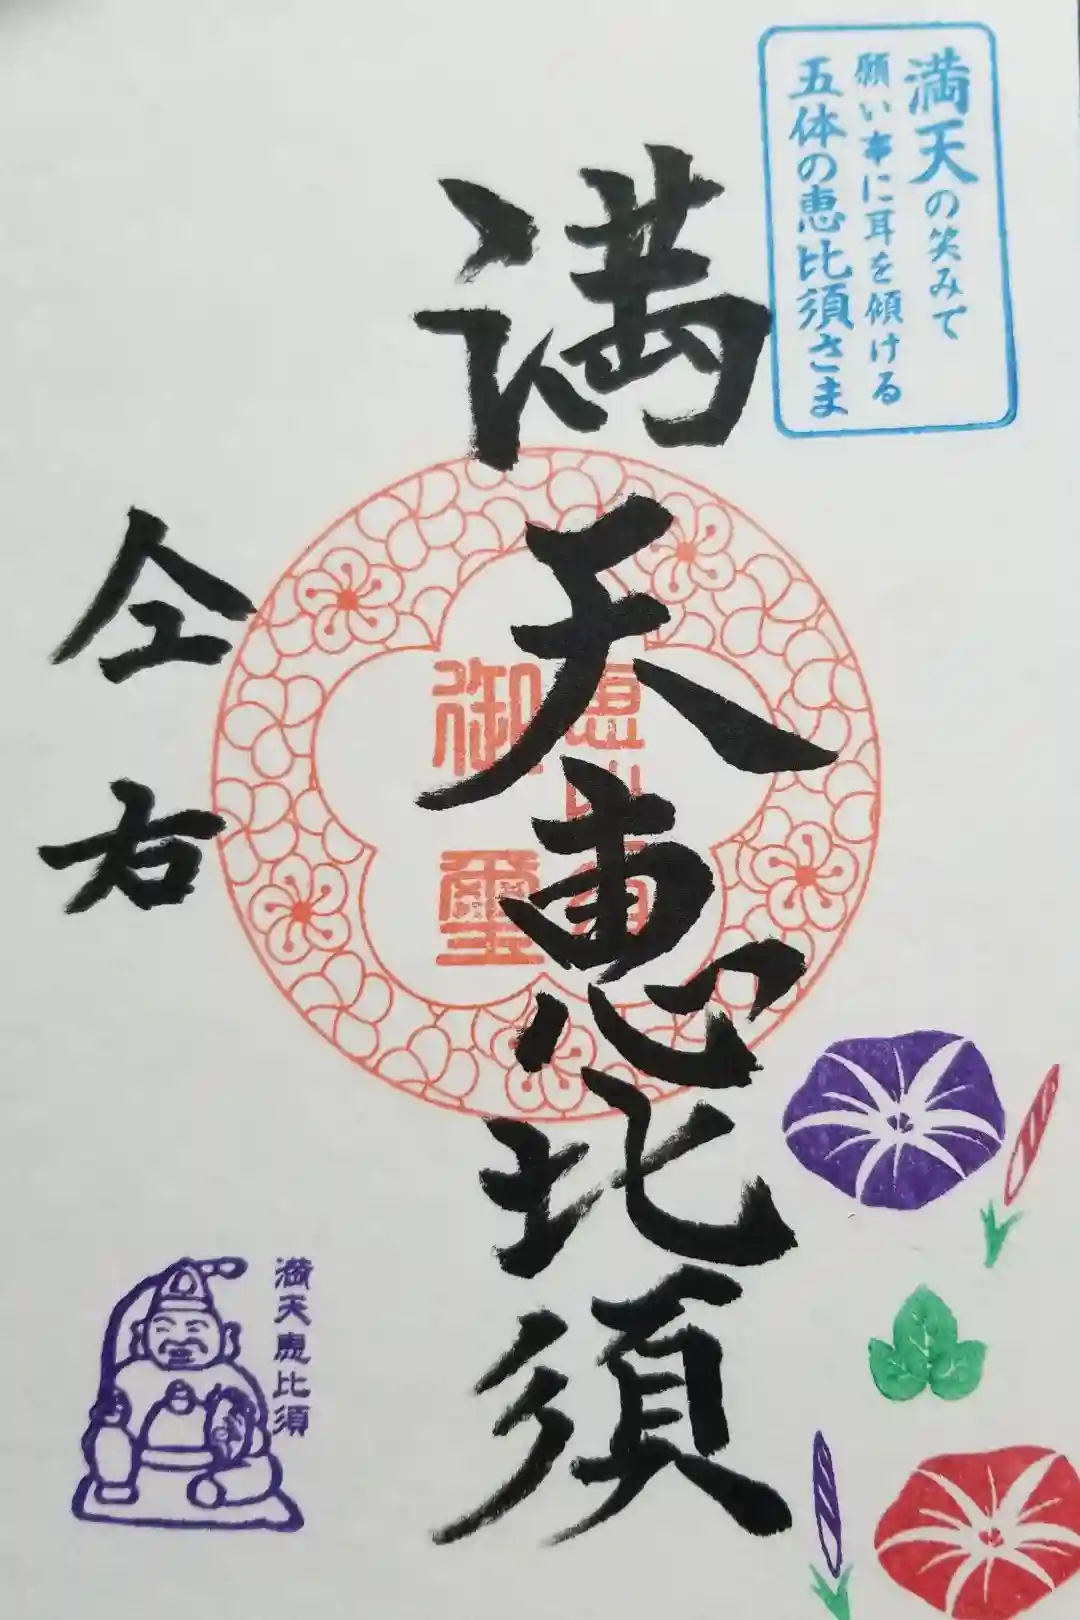 満天の笑みで
願い事に耳を傾ける
五体の恵比須さま
満天恵比須
御璽
仝右
満天恵比須